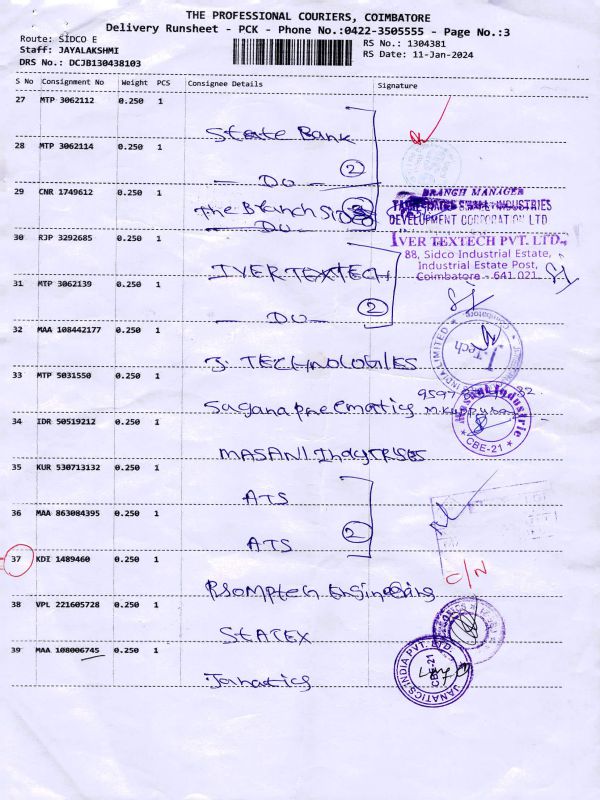 THE PROFESSIONAL COURIERS, COIMBATORE
Delivery Runsheet - PCK - Phone No.:0422-3505555 - Page No.:3
Route: SIDCO E
Staff: JAYALAKSHMI
DRS No.: DCJB130438103
RS No.: 1304381
RS Date: 11-Jan-2024
S No Consignment No Weight PCS Consignee Details Signature
27 MTP 3062112 0.250 1
State Bank
28 MTP 3062114 0.250 1
2
DO
29 CNR 1749612 0.250 1
BRANCH MANAGER
The Branch SIDCO
INDUSTRIES
DEVELOPMENT CORPORATION LTD
DO
30 RJP 3292685 0.250 1
IVER TEXTECH PVT. LTD.,
88, Sidco Industrial Estate,
Industrial Estate Post,
Coimbatore - 641 021
IVER TEXTECH
31 MTP 3062139 0.250 1
2
DO
32 MAA 108442177 0.250 1
INDIA LIMITED
Coimbatore
i Tech
J. TECHNOLOGIES
33 MTP 5031550 0.250 1
Sagana Pneematics
34 IDR 50519212 0.250 1
Industrie
CBE-21
MASANI Indqtrises
35 KUR 530713132 0.250 1
ATS
36 MAA 863084395 0.250 1
2
ATS
37 KDI 1489460 0.250 1
C/N
Promptech Engineering
38 VPL 221605728 0.250 1
STATEX
39 MAA 108006745 0.250 1
JANATICS INDIA PVT. LTD.
CBE-21
Janatics